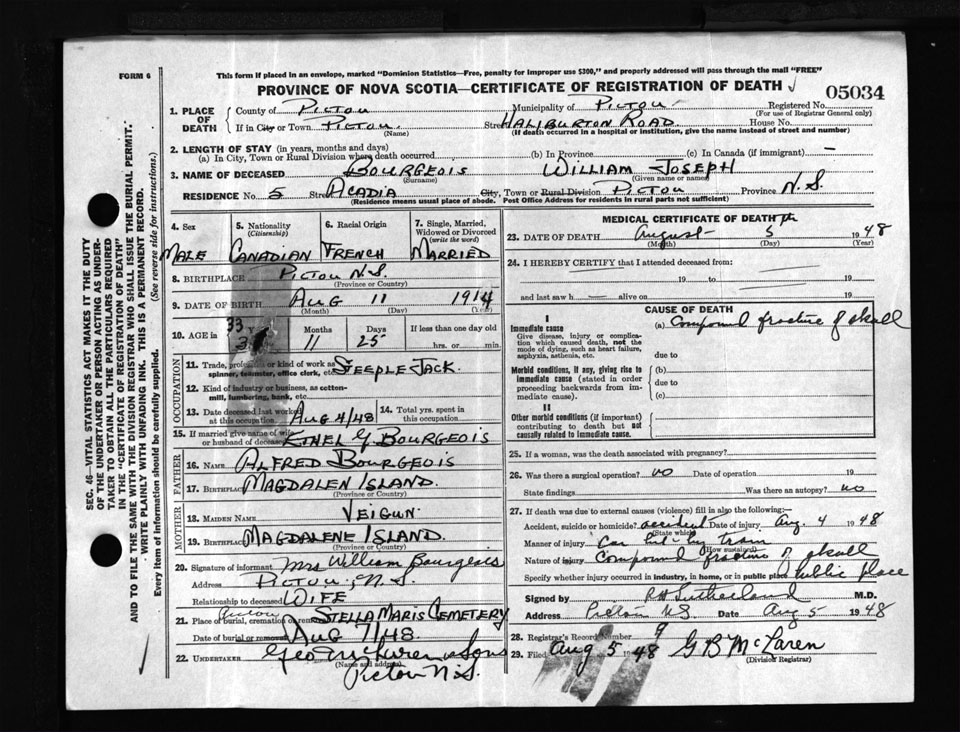 FORM 6
This form if placed in an envelope, marked "Dominion Statistics—Free, penalty for improper use $300," and properly addressed will pass through the mail "FREE"
PROVINCE OF NOVA SCOTIA—CERTIFICATE OF REGISTRATION OF DEATH
05034
1. PLACE OF DEATH
County of PICTOU Municipality of PICTOU Registered No.
(For use of Registrar General only)
If in City or Town PICTOU. Street HALIBURTON ROAD House No.
(Name) (If death occurred in a hospital or institution, give the name instead of street and number)
2. LENGTH OF STAY (in years, months and days)
(a) In City, Town or Rural Division where death occurred (b) In Province (c) In Canada (if immigrant) —
3. NAME OF DECEASED BOURGEOIS WILLIAM JOSEPH
(Surname) (Given name or names)
RESIDENCE No. 5 Street ACADIA City, Town or Rural Division PICTOU Province N.S.
(Residence means usual place of abode. Post Office Address for residents in rural parts not sufficient)
SEC. 46—VITAL STATISTICS ACT MAKES IT THE DUTY
OF THE UNDERTAKER OR PERSON ACTING AS UNDER-
TAKER TO OBTAIN ALL THE PARTICULARS REQUIRED
IN THE "CERTIFICATE OF REGISTRATION OF DEATH"
AND TO FILE THE SAME WITH THE DIVISION REGISTRAR WHO SHALL ISSUE THE BURIAL PERMIT.
WRITE PLAINLY WITH UNFADING INK. THIS IS A PERMANENT RECORD.
Every item of information should be carefully supplied. (See reverse side for instructions.)
4. Sex 5. Nationality (Citizenship) 6. Racial Origin 7. Single, Married, Widowed or Divorced (write the word)
MALE CANADIAN FRENCH MARRIED
8. BIRTHPLACE PICTOU N.S.
(Province or Country)
9. DATE OF BIRTH AUG 11 1914
(Month) (Day) (Year)
10. AGE in 33 Months 11 Days 25 If less than one day old
hrs. or min.
OCCUPATION
11. Trade, profession or kind of work as spinner, teamster, office clerk, etc. STEEPLE JACK.
12. Kind of industry or business, as cotton-mill, lumbering, bank, etc.
13. Date deceased last worked at this occupation. AUG 4/48 14. Total yrs. spent in this occupation.
15. If married give name of wife or husband of deceased ETHEL G BOURGEOIS
FATHER
16. NAME ALFRED BOURGEOIS
17. BIRTHPLACE MAGDALEN ISLAND.
(Province or Country)
MOTHER
18. MAIDEN NAME VEIGUN.
19. BIRTHPLACE MAGDALENE ISLAND.
(Province or Country)
20. Signature of informant Mrs William Bourgeois
Address PICTOU, N.S.
Relationship to deceased WIFE
21. Place of burial, cremation or removal STELLA MARIS CEMETERY
Date of burial or removal AUG 7/48
22. UNDERTAKER Geo McLaren & Sons
(Name and address)
Pictou N.S.
MEDICAL CERTIFICATE OF DEATH
23. DATE OF DEATH August 5th 1948
(Month) (Day)
24. I HEREBY CERTIFY that I attended deceased from:
19 to 19
and last saw h — alive on 19
CAUSE OF DEATH
I
Immediate cause (a) Compound fracture of skull
Give disease, injury or complication which caused death, not the mode of dying, such as heart failure, asphyxia, asthenia, etc. due to
Morbid conditions, if any, giving rise to immediate cause (stated in order proceeding backwards from immediate cause). (b) due to (c)
II
Other morbid conditions (if important) contributing to death but not causally related to immediate cause.
25. If a woman, was the death associated with pregnancy?
26. Was there a surgical operation? no Date of operation 19
State findings Was there an autopsy? no
27. If death was due to external causes (violence) fill in also the following:—
Accident, suicide or homicide? accident Date of injury Aug. 4 1948
(State which)
Manner of injury Car hit by train
(How sustained)
Nature of injury Compound fracture of skull
Specify whether injury occurred in industry, in home, or in public place Public place
Signed by R H Sutherland M.D.
Address Pictou N S Date Aug 5 1948
28. Registrar's Record Number 9
29. Filed Aug 5 1948 G B McLaren
(Division Registrar)